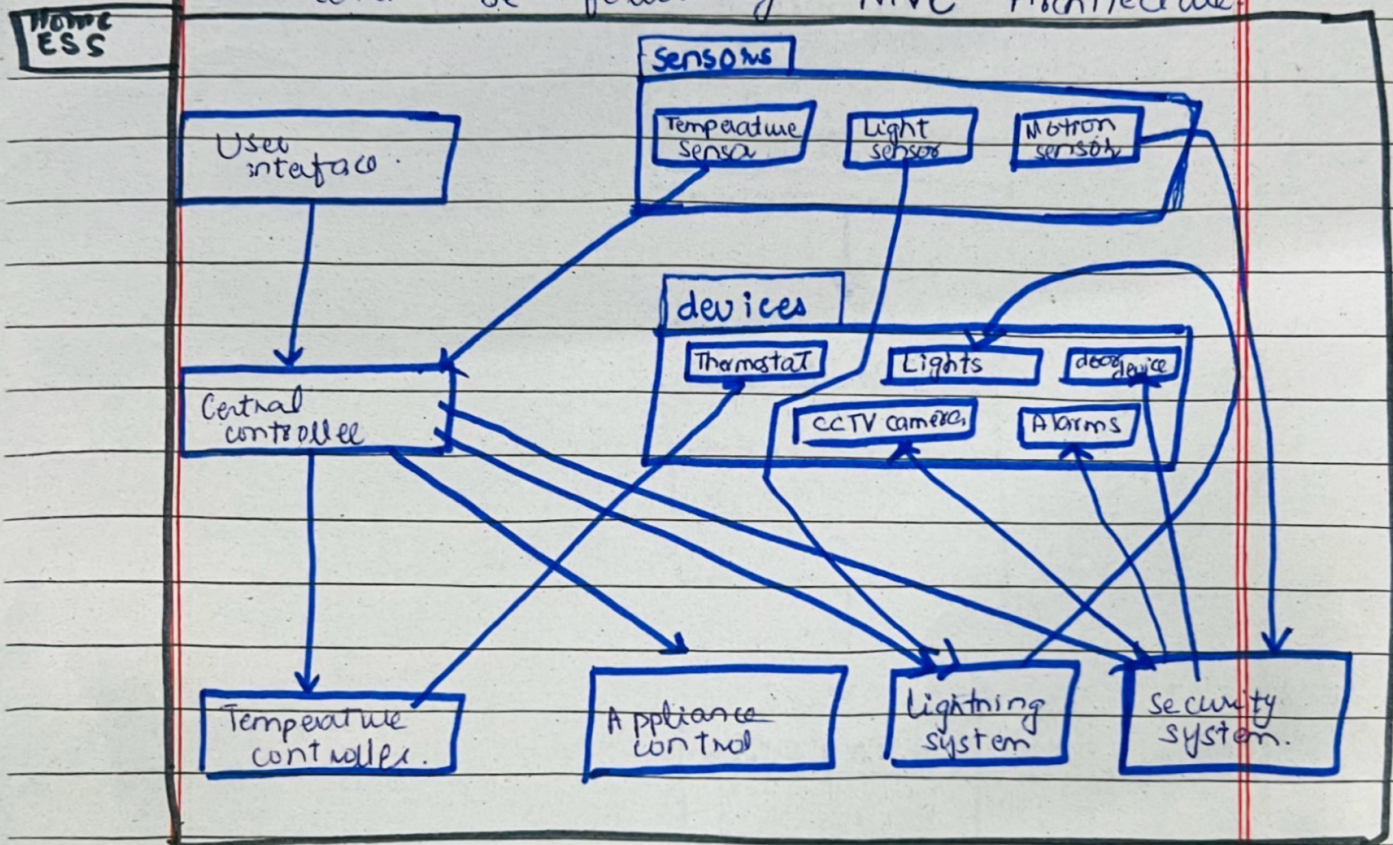 MVC Architecture.
Home
ESS
Sensors
Temperature
Sensor
Light
sensor
Motion
sensor
User
interface
devices
Thermostat
Lights
door device
CCTV camera
Alarms
Central
controller
Temperature
controller.
Appliance
control
Lightning
system
Security
system.